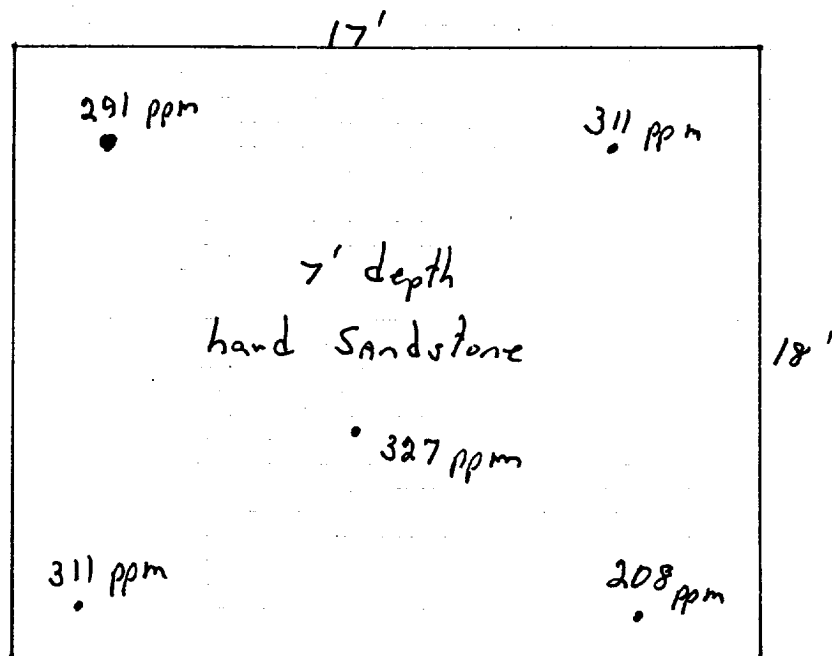 17'
291 ppm
311 ppm
7' depth
hard Sandstone
18'
327 ppm
311 ppm
208 ppm